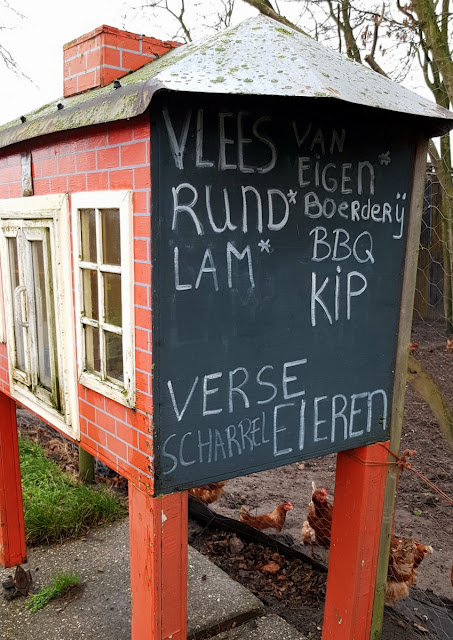 VLEES VAN
EIGEN*
RUND* BOERDERIJ
LAM* BBQ
KIP
VERSE
SCHARREL EIEREN